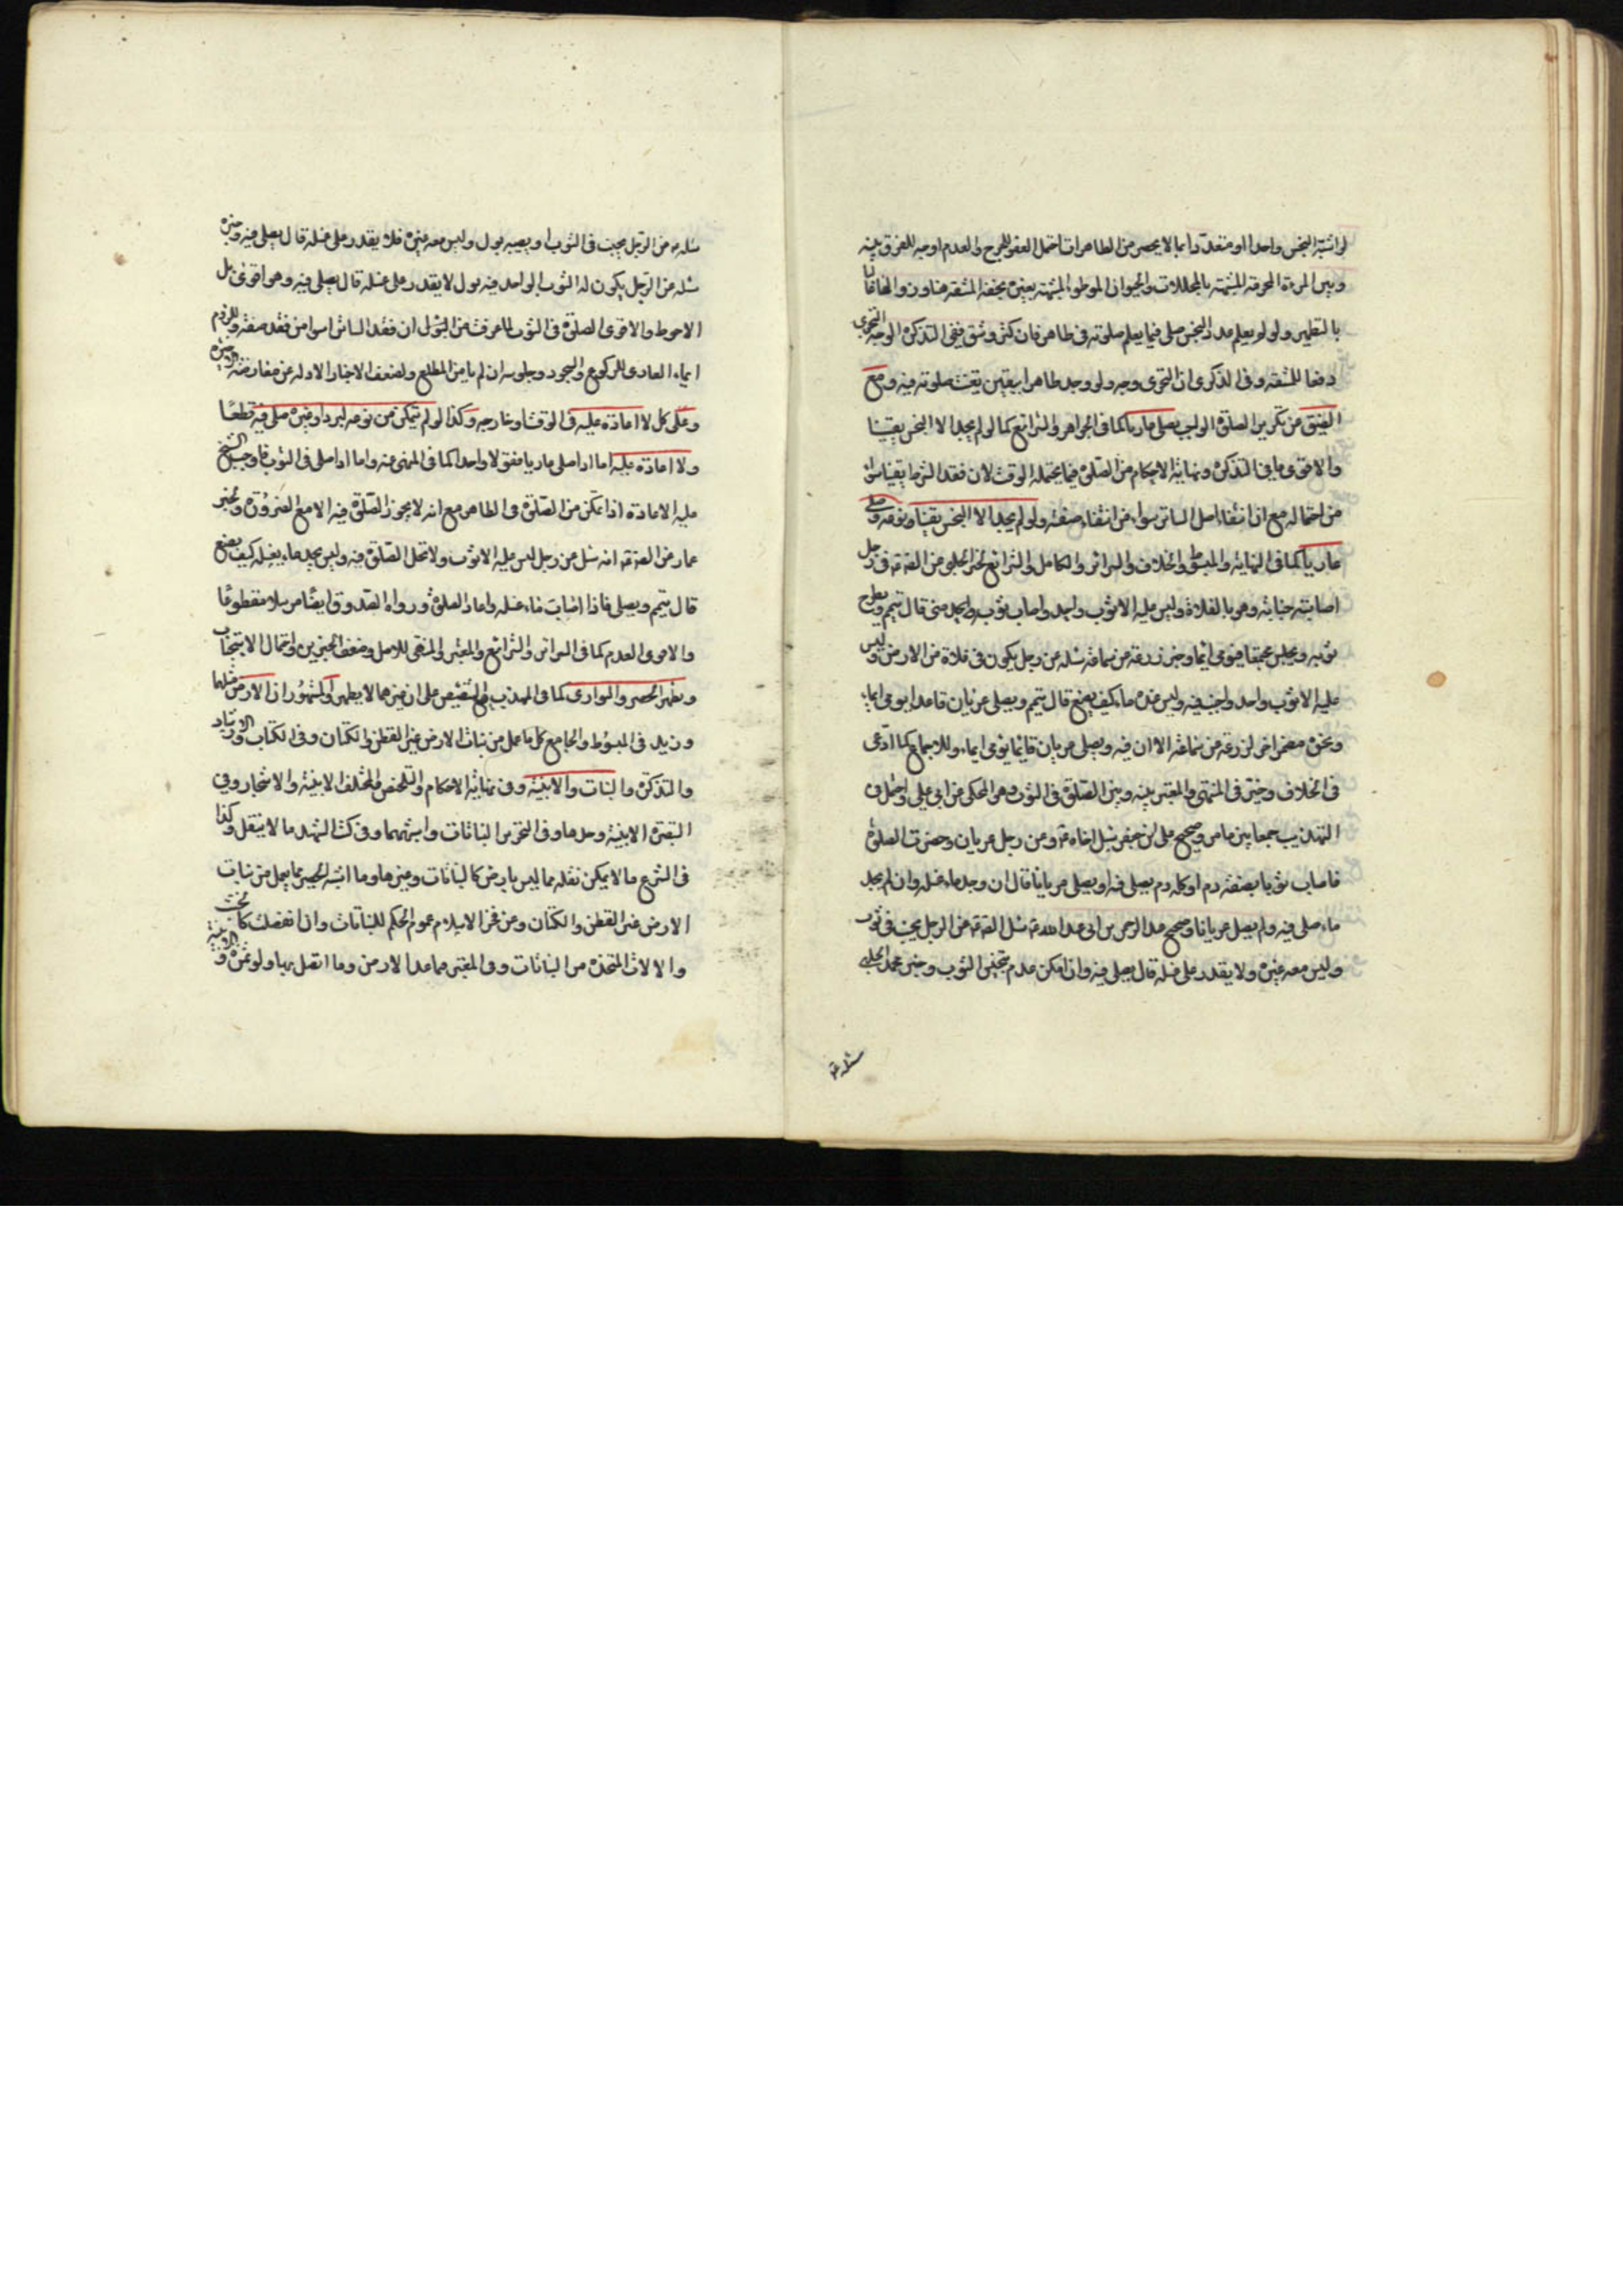 لو اشتبه النجس واحدا او متعددا بما لا يحصر من الطاهرات احتمل العفو للحرج والعدم اوجه للفرق بينه
وبين المرءة المحرمة المشتبهة بالمحللات والحيوان الموطوء المشتبه بغيره بخفة المشقة هنا
بالتطهير ولو لم يعلم عدد النجس صلى فيما يعلم صلوته في طاهر فان كثر وشق ففي التذكرة الوجه التحري
دفعا للمشقة وفي الذكرى ان التحري وجه ولو وجد طاهرا بيقين تعينت صلوته فيه ومع
الضيق من تكرير الصلوة الواجب يصلي عاريا كما في الجواهر والشرائع كما لو لم يجد الا النجس يقينا
والاقوى ما في التذكرة ونهاية الاحكام من الصلوة فيما يحتمله الوقت لان فقد الشرط يقينا سوء
من احتماله مع ان انتفاء اصل الساتر سواء من انتفاء صفته ولو لم يجد الا النجس يقينا ونزعه وصلى
عاريا كما في النهاية والمبسوط والخلاف والسرائر والكامل والشرائع لخبر الحلبي عن الصادق ع في رجل
اصابته جنابة وهو بالفلاة وليس عليه الا ثوب واحد واصاب ثوبه واحد مني قال يتيمم ويطرح
ثوبه ويجلس مجتمعا فيومي ايماء وخبر زرعة عن سماعة سئله عن رجل يكون في فلاة من الارض وليس
عليه الا ثوب واحد واجنب فيه وليس عنده ماء كيف يصنع قال يتيمم ويصلي عريان قاعدا يومي ايماء
ونحوه مضمر اخر لزرعة عن سماعة الا ان فيه ويصلي عريان قائما يومي ايماء وللاجماع كما ادعى
في الخلاف وخير في المنتهى والمعتبر بينه وبين الصلوة في الثوب وهو المحكي عن ابي علي واحتمل في
التهذيب جمعا بين ما مر وصحيح علي بن جعفر سئل اخاه ع وعن رجل عريان وحضرت الصلوة
فاصاب ثوبا نصفه دم او كله دم يصلي فيه او يصلي عريانا قال ان وجد ماء غسله وان لم يجد
ماء صلى فيه ولم يصل عريانا وصحيح عبد الرحمن بن ابي عبد الله ع سئل الصادق ع عن الرجل يجنب في ثوب
وليس معه غيره ولا يقدر على غسله قال يصلي فيه وان امكن عدم تنجس الثوب وخبر محمد الحلبي
سئله ع
سئله ع عن الرجل يجنب في الثوب او يصيبه بول وليس معه غيره فلا يقدر على غسله قال يصلي فيه وخبره
سئله عن الرجل يكون له الثوب الواحد فيه بول لا يقدر على غسله قال يصلي فيه وهو اقوى بل
الاحوط والاقوى الصلوة في الثوب لما عرفت من النزل ان فقد الساتر اسوا من فقد صفته وللزوم
ايماء العاري للركوع والسجود وجلوسه ان لم يامن المطلع ولضعف الاخبار الاولة عن معارضة
وعلى كل لا اعادة عليه في الوقت او خارجه وكذا لو لم يتمكن من نزعه لبرد او غيره صلى فيه قطعا
ولا اعادة عليه اما اذا صلى عاريا مفتولا واحدا كما في المنهى عنه واما اذا صلى في الثوب فاوجب الشيخ
عليه الاعادة اذا تمكن من الصلوة في الطاهر مع انه لا يجوز الصلوة فيه الا مع الضرورة ولخبر
عمار عن الصادق ع انه سئل عن رجل ليس عليه الا ثوب ولا تحل الصلوة فيه وليس يجد ماء يغسله كيف يصنع
قال يتيمم ويصلي فاذا اصاب ماء غسله واعاد الصلوة ورواه الصدوق ايضا مرسلا مقطوعا
والاقوى العدم كما في السرائر والشرائع والمعتبر والمنتهى للاصل وضعف الخبرين واحتمال الاستحباب
وتطهر الحصر والبواري كما في المهذب مع التنصيص على ان غيرهما لا يطهر والمشهور ان الارض مثلهما
وزيد في المبسوط والجامع كل ما عمل من نبات الارض غير القطن والكتان وفي الكتاب والارشاد
والتذكرة والنبات والابنية وفي نهاية الاحكام والتلخيص والمختلف الابنية والاشجار وفي
التبصرة الابنية وحدها وفي التحرير النباتات واشبهها وفي كتب الشهيد ما لا ينقل وكذا
في الشرائع ما لا يمكن نقله مما ليس بارض كالنباتات وغيرها وما اشبه الحصير بما يعمل من نبات
الارض غير القطن والكتان وعن فخر الاسلام عموم الحكم للنباتات وان انفصلت كالخشب
والالات المتخذة من النباتات وفي المعتبر فيما عدا الارض وما اتصل بها ولو ثمرة و